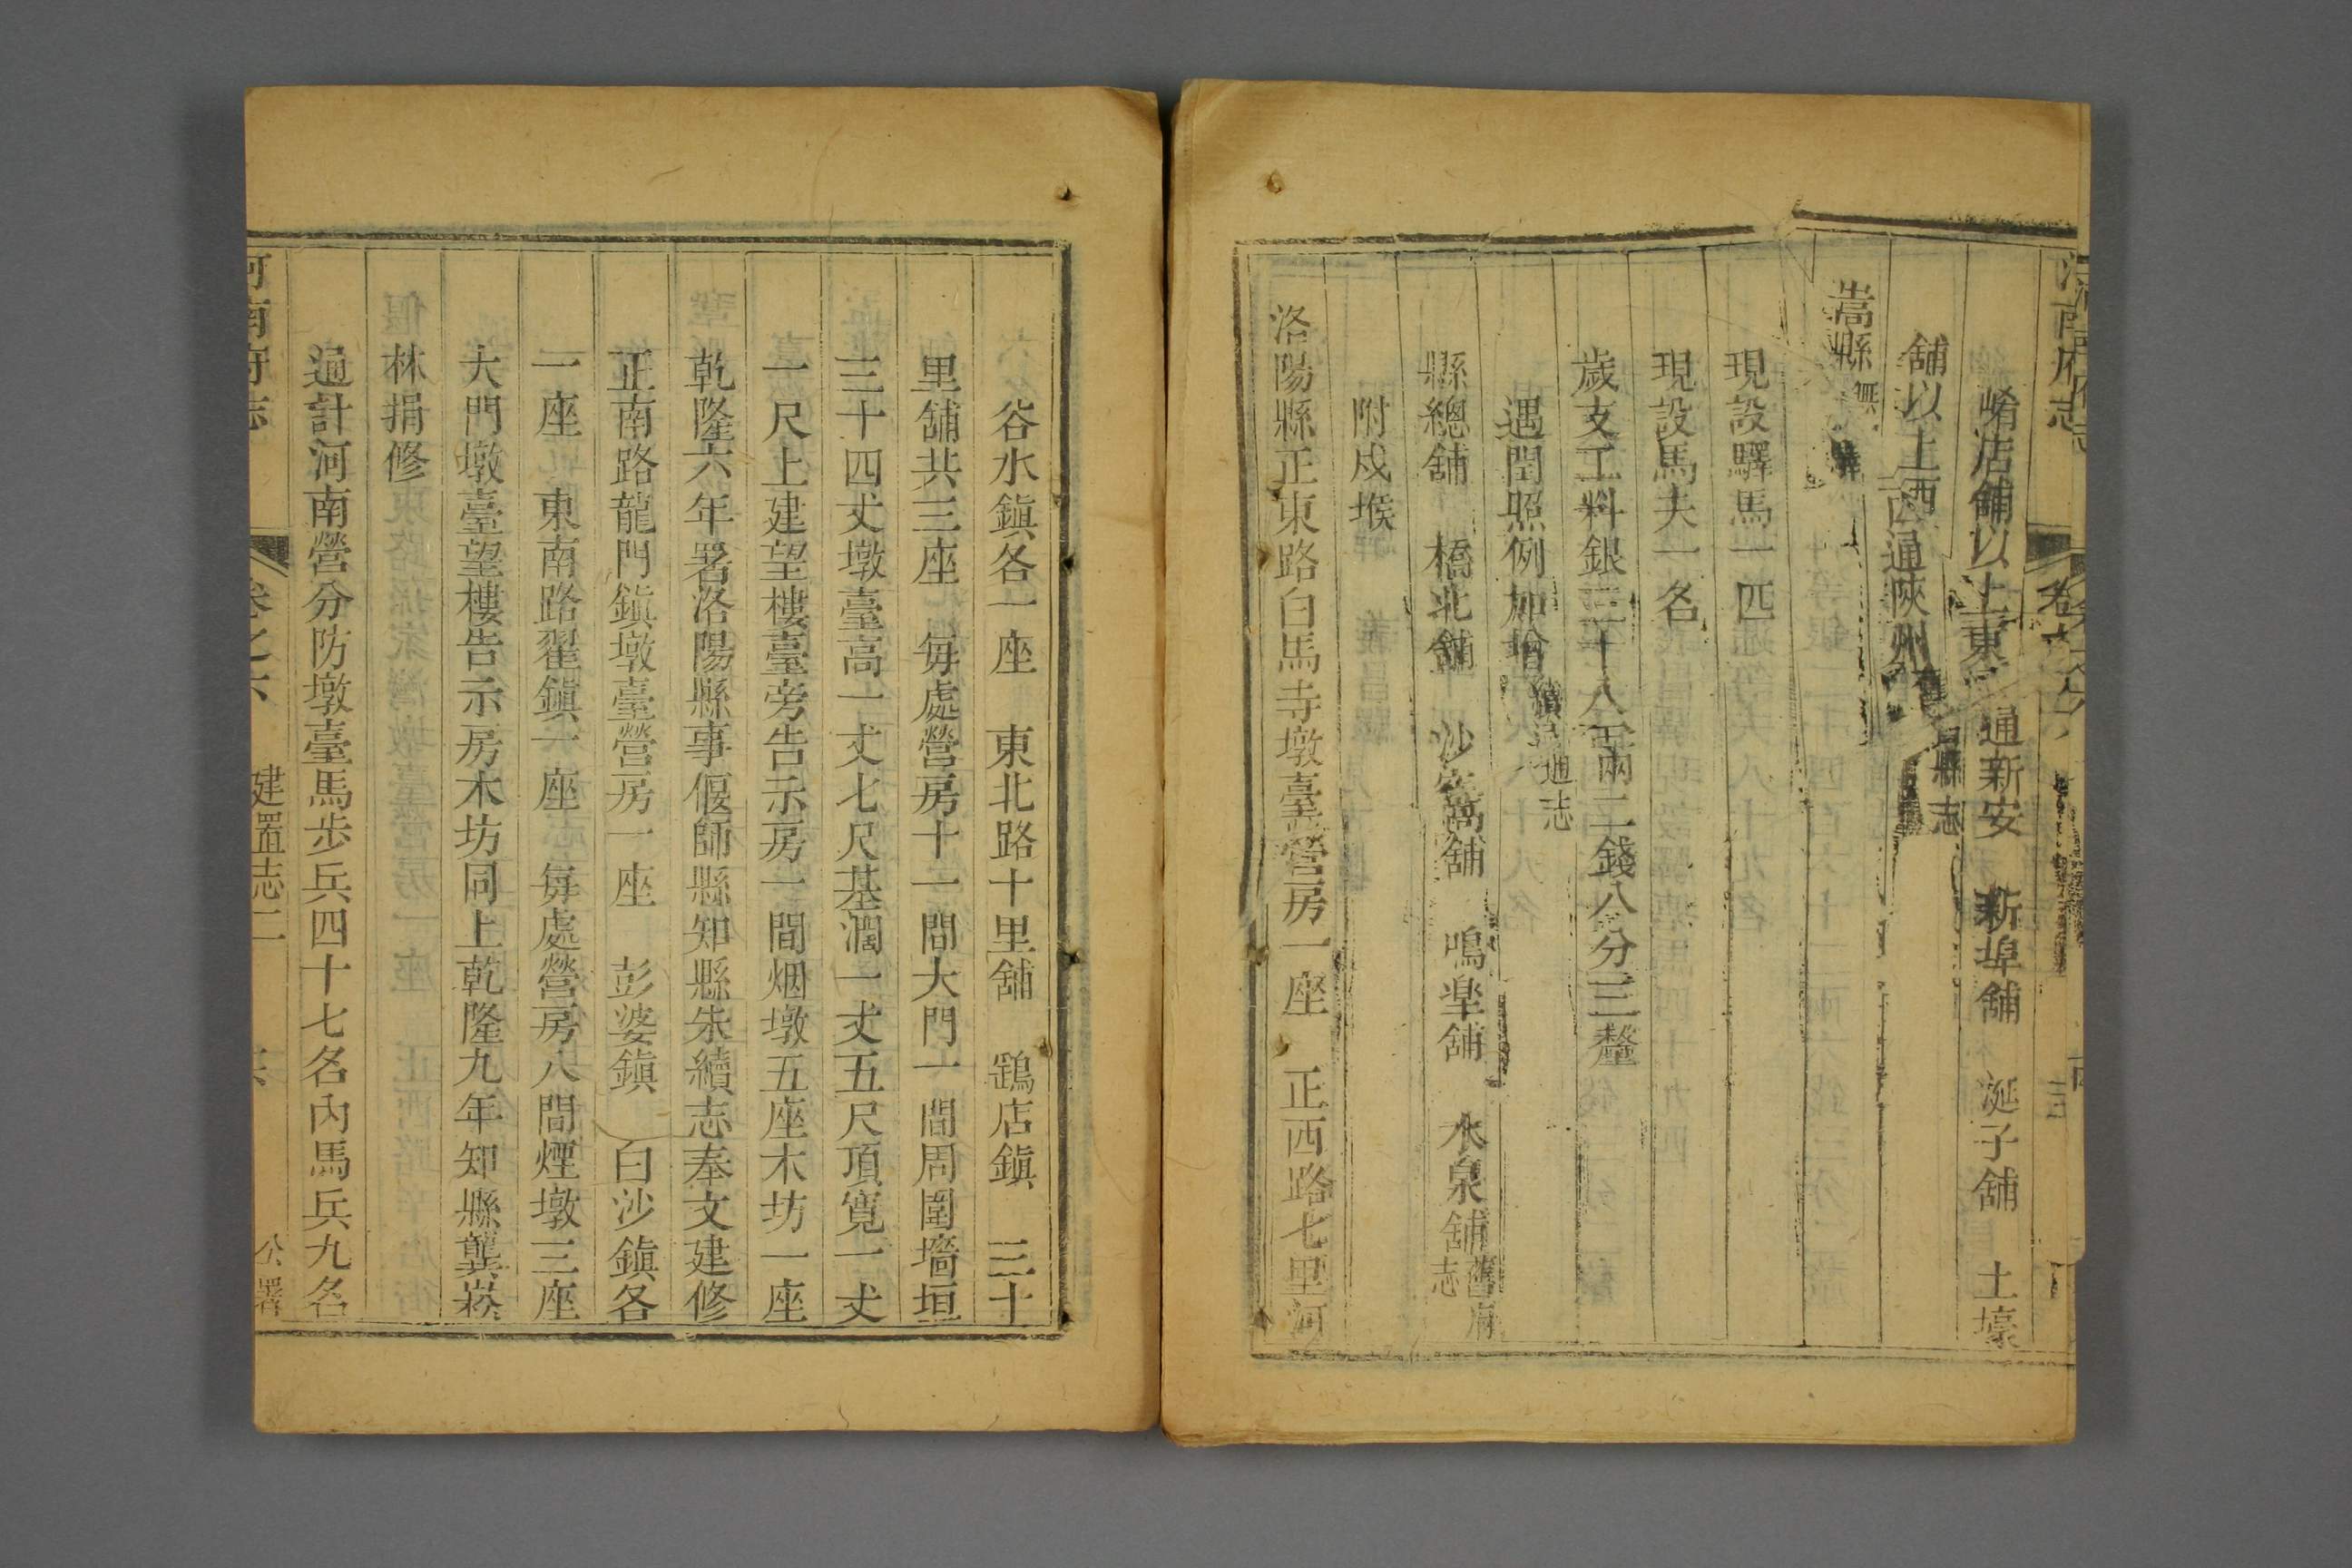 河南府志
崤店舖以上東通新安　新埠舖　涎子舖　土壕
舖以上西通陝州舊縣志
嵩縣無驛
現設驛馬一匹
現設馬夫一名
歲支工料銀三十八兩二錢八分三釐
遇閏照例加增續通志
縣總舖　橋北舖　沙窩舖　鳴皐舖　水泉舖舊府志
附戍堠
洛陽縣正東路白馬寺墩臺營房一座　正西路七里河
谷水鎮各一座　東北路十里舖　鵶店鎮　三十
里舖共三座　每處營房十一間大門一間周圍墻垣
三十四丈墩臺高一丈七尺基濶一丈五尺頂寬一丈
一尺上建望樓臺旁告示房一間烟墩五座木坊一座
乾隆六年署洛陽縣事偃師縣知縣朱續志奉文建修
正南路龍門鎮墩臺營房一座　彭婆鎮　白沙鎮各
一座　東南路翟鎮一座　每處營房八間煙墩三座
大門墩臺望樓告示房木坊同上乾隆九年知縣龔崧
林捐修
通計河南營分防墩臺馬步兵四十七名內馬兵九名
河南府志　卷之六　建置志二　公署